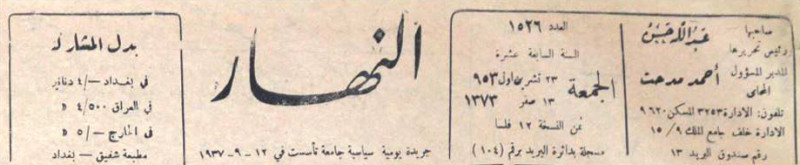 صاحبها
ورئيس تحريرها
عبد الله حسن
المدير المسؤول
المحامي
أحمد مدحت
تلفون: الادارة ٣٢٥٣ المسكن ٩٦٢٠
الادارة خلف جامع الملك ١٥/٩
رقم صندوق البريد ١٣
العدد ١٥٢٦
السنة السابعة عشرة
الجمعة
٢٣ تشرين اول ٩٥٣
١٣ صفر ١٣٧٣
ثمن النسخة ١٢ فلسا
مسجلة بدائرة البريد برقم (١٠٤)
النهار
جريدة يومية سياسية جامعة تأسست في ١٢-٩-١٩٣٧
بدل المشاركة
في بغداد -/٤ دنانير
في العراق ٤/٥٠٠ »
في الخارج -/٥ »
مطبعة شفيق - بغداد